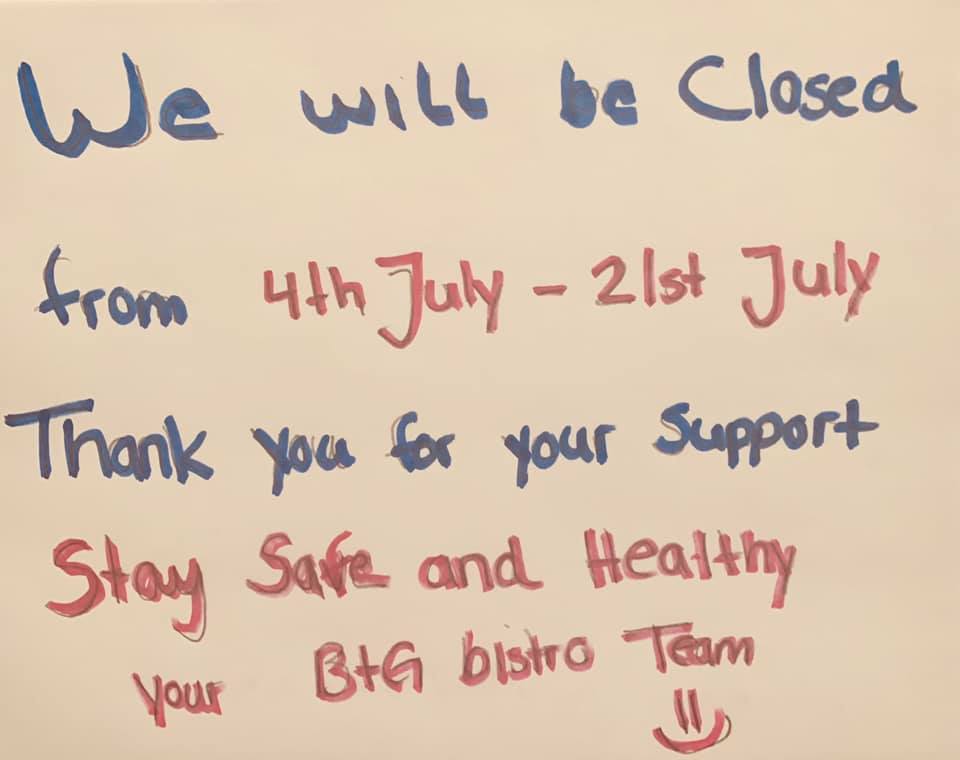 We will be Closed
from 4th July - 21st July
Thank you for your Support
Stay Safe and Healthy
your B+G bistro Team